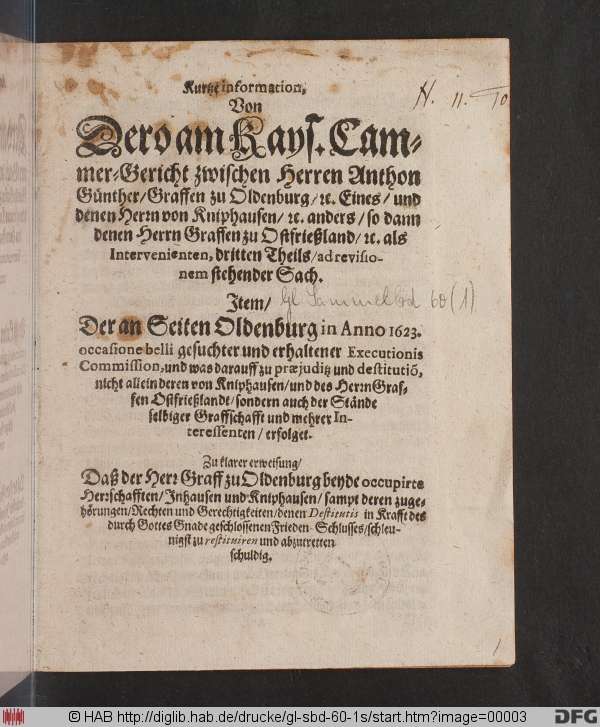 Kurtze information,
Von
Dero am Kays. Cam-
mer-Gericht zwischen Herren Anthon
Günther/Graffen zu Oldenburg/ ꝛc. Eines/ und
denen Herrn von Kniphausen/ ꝛc. anders/ so dann
denen Herrn Graffen zu Ostfrießland/ ꝛc. als
Intervenienten, dritten Theils/ ad revisio-
nem stehender Sach.
Item/
Der an Seiten Oldenburg in Anno 1623.
occasione belli gesuchter und erhaltener Executionis
Commission, und was darauff zu præjuditz und destitutiõ,
nicht allein deren von Kniphausen/ und des Herrn Graf-
fen Ostfrießlandt/ sondern auch der Stände
selbiger Graffschafft und mehrer In-
teressenten/ erfolget.
Zu klarer erweisung/
Daß der Herr Graff zu Oldenburg beyde occupirte
Herrschafften/ Inhausen und Kniphausen/ sampt deren zuge-
hörungen/ Rechten und Gerechtigkeiten/ denen Destitutis in Krafft des
durch Gottes Gnade geschlossenen Frieden-Schlusses/ schleu-
nigst zu restituiren und abzutretten
schuldig.
H. 11.
Gl Sammelbd 60 (1)
1
© HAB http://diglib.hab.de/drucke/gl-sbd-60-1s/start.htm?image=00003
DFG